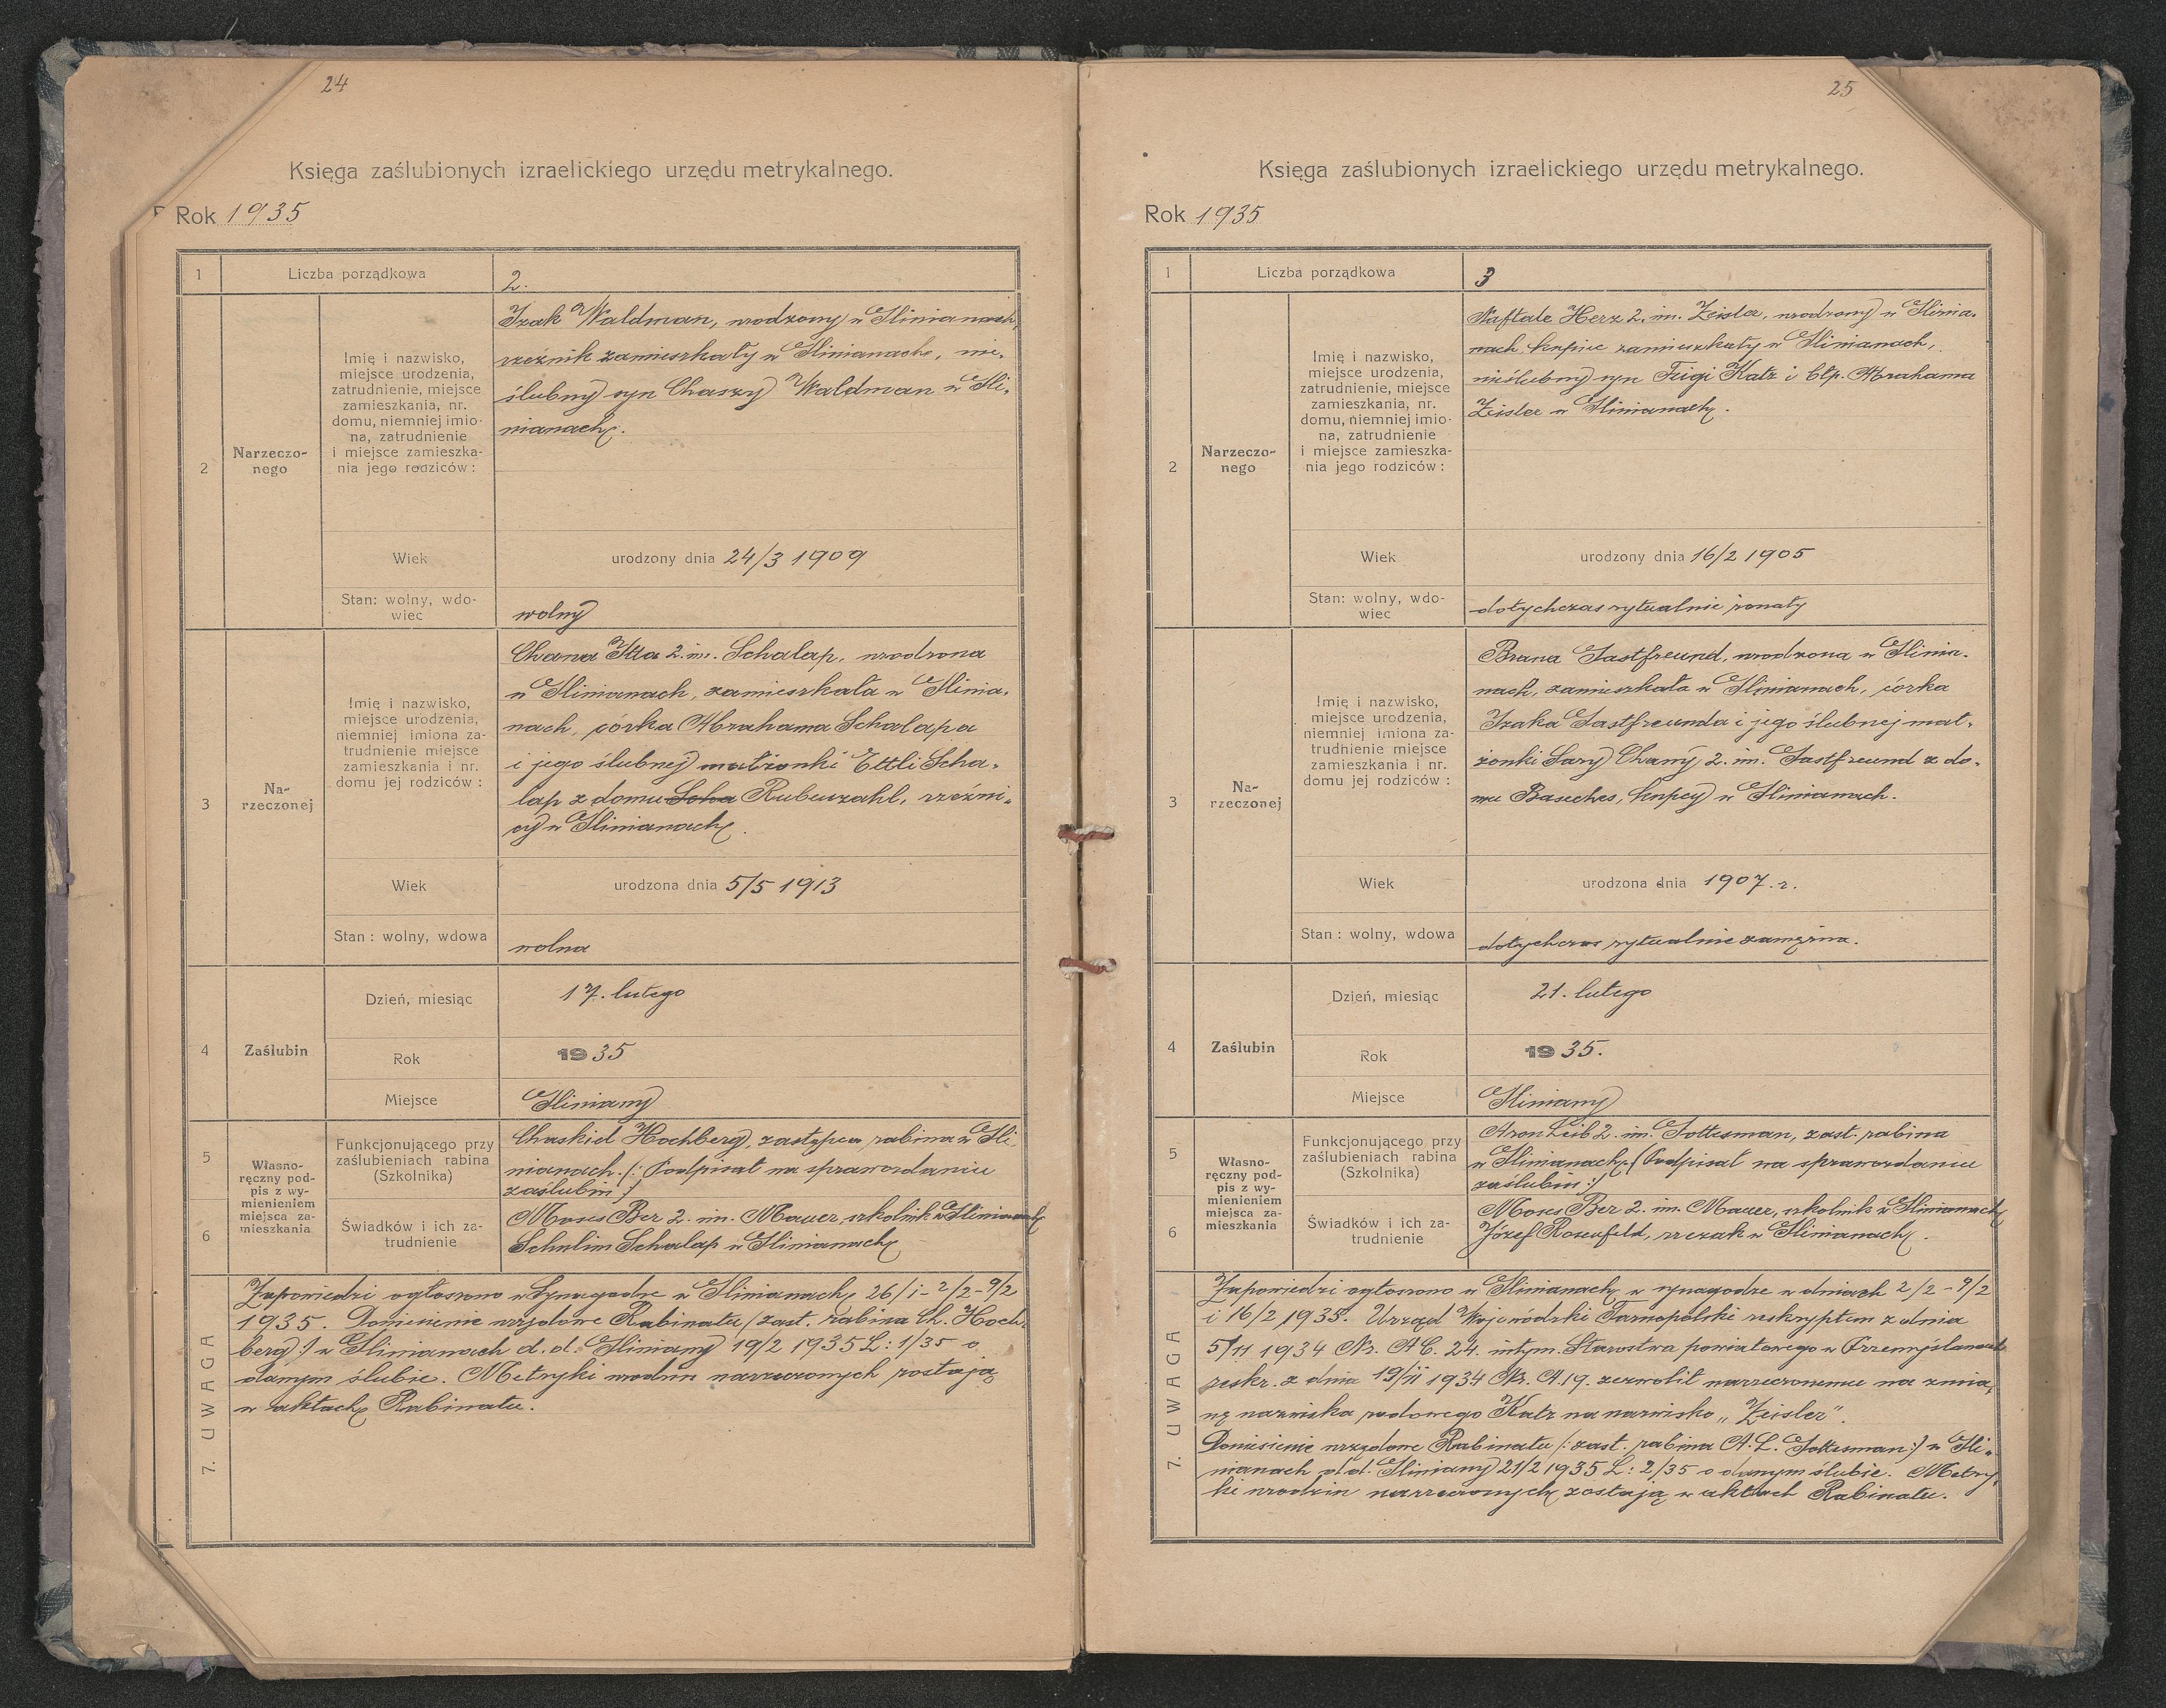 24
Księga zaślubionych izraelickiego urzędu metrykalnego.
Rok 1935
1
Liczba porządkowa
2.
2
Narzeczo-
nego
Imię i nazwisko,
miejsce urodzenia,
zatrudnienie, miejsce
zamieszkania, nr.
domu, niemniej imio-
na, zatrudnienie
i miejsce zamieszka-
nia jego rodziców :
Izak Waldman, urodzony w Glinianach,
rzeźnik zamieszkały w Glinianach, nie-
ślubny syn Chaszy Waldman w Gli-
nianach.
Wiek
urodzony dnia 24/3 1909
Stan: wolny, wdo-
wiec
wolny
3
Na-
rzeczonej
Imię i nazwisko,
miejsce urodzenia,
niemniej imiona za-
trudnienie miejsce
zamieszkania i nr.
domu jej rodziców :
Chana Itta 2. im. Schalap, urodzona
w Glinianach, zamieszkała w Glinia-
nach, córka Abrahama Schalapa
i jego ślubnej małżonki Ettli Scha-
lap z domu Scha Rubenzahl, rzeźni-
cy w Glinianach.
Wiek
urodzona dnia 5/5 1913
Stan : wolny, wdowa
wolna
4
Zaślubin
Dzień, miesiąc
17. lutego
Rok
1935
Miejsce
Gliniany
5
6
Własno-
ręczny pod-
pis z wy-
mienieniem
miejsca za-
mieszkania
Funkcjonującego przy
zaślubieniach rabina
(Szkolnika)
Chaskiel Hochberg, zastępca rabina w Gli-
nianach. (: Podpisał na sprawozdaniu
zaślubin :)
Świadków i ich za-
trudnienie
Moses Ber 2. im. Mauer, szkolnik w Glinianach
Schulim Schalap w Glinianach
7. UWAGA
Zapowiedzi ogłoszono w Synagodze w Glinianach 26/1 - 2/2 - 9/2
1935. Doniesienie urzędowe Rabinatu (zast. rabina Ch. Hoch-
berg :) w Glinianach d. d. Gliniany 19/2 1935 L: 1/35 o
danym ślubie. Metryki urodzin narzeczonych zostają
w aktach Rabinatu.
25
Księga zaślubionych izraelickiego urzędu metrykalnego.
Rok 1935
1
Liczba porządkowa
3
2
Narzeczo-
nego
Imię i nazwisko,
miejsce urodzenia,
zatrudnienie, miejsce
zamieszkania, nr.
domu, niemniej imio-
na, zatrudnienie
i miejsce zamieszka-
nia jego rodziców :
Naftale Herz 2. im. Zeisler, urodzony w Glinia-
nach, kupiec zamieszkały w Glinianach,
nieślubny syn Feigi Katz i błp. Abrahama
Zeisler w Glinianach.
Wiek
urodzony dnia 16/2 1905
Stan: wolny, wdo-
wiec
dotychczas rytualnie żonaty
3
Na-
rzeczonej
Imię i nazwisko,
miejsce urodzenia,
niemniej imiona za-
trudnienie miejsce
zamieszkania i nr.
domu jej rodziców :
Brana Gastfreund, urodzona w Glinia-
nach, zamieszkała w Glinianach, córka
Izaka Gastfreunda i jego ślubnej mał-
żonki Sary Chany 2. im. Gastfreund z do-
mu Baseches, kupcy w Glinianach.
Wiek
urodzona dnia 1907. r.
Stan : wolny, wdowa
dotychczas rytualnie zamężna.
4
Zaślubin
Dzień, miesiąc
21. lutego
Rok
1935.
Miejsce
Gliniany
5
6
Własno-
ręczny pod-
pis z wy-
mienieniem
miejsca za-
mieszkania
Funkcjonującego przy
zaślubieniach rabina
(Szkolnika)
Aron Leib 2. im. Gottesman, zast. rabina
w Glinianach (: Podpisał na sprawozdaniu
zaślubin :)
Świadków i ich za-
trudnienie
Moses Ber 2. im. Mauer, szkolnik w Glinianach
Józef Rosenfeld, rzezak w Glinianach.
7. UWAGA
Zapowiedzi ogłoszono w Glinianach w synagodze w dniach 2/2 - 9/2
i 16/2 1935. Urząd Wojewódzki Tarnopolski reskryptem z dnia
5/11 1934 Nr. AC. 24. intym. Starostwa powiatowego w Przemyślanach
reskr. z dnia 19/11 1934 Nr. A.19. zezwolił narzeczonemu na zmia-
nę nazwiska rodowego Katz na nazwisko „Zeisler".
Doniesienie urzędowe Rabinatu (: zast. rabina A. L. Gottesman :) w Gli-
nianach d d. Gliniany 21/2 1935 L: 2/35 o danym ślubie. Metry-
ki urodzin narzeczonych zostają w aktach Rabinatu.